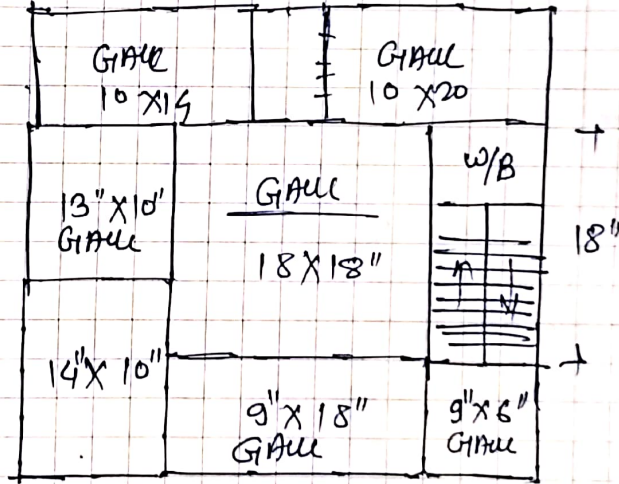 GAUL
10 X15
GAUL
10 X20
W/B
13" X10"
GAUL
GAUL
18 X 18"
18"
14" X 10"
9" X 18"
GAUL
9" X 6"
GAUL